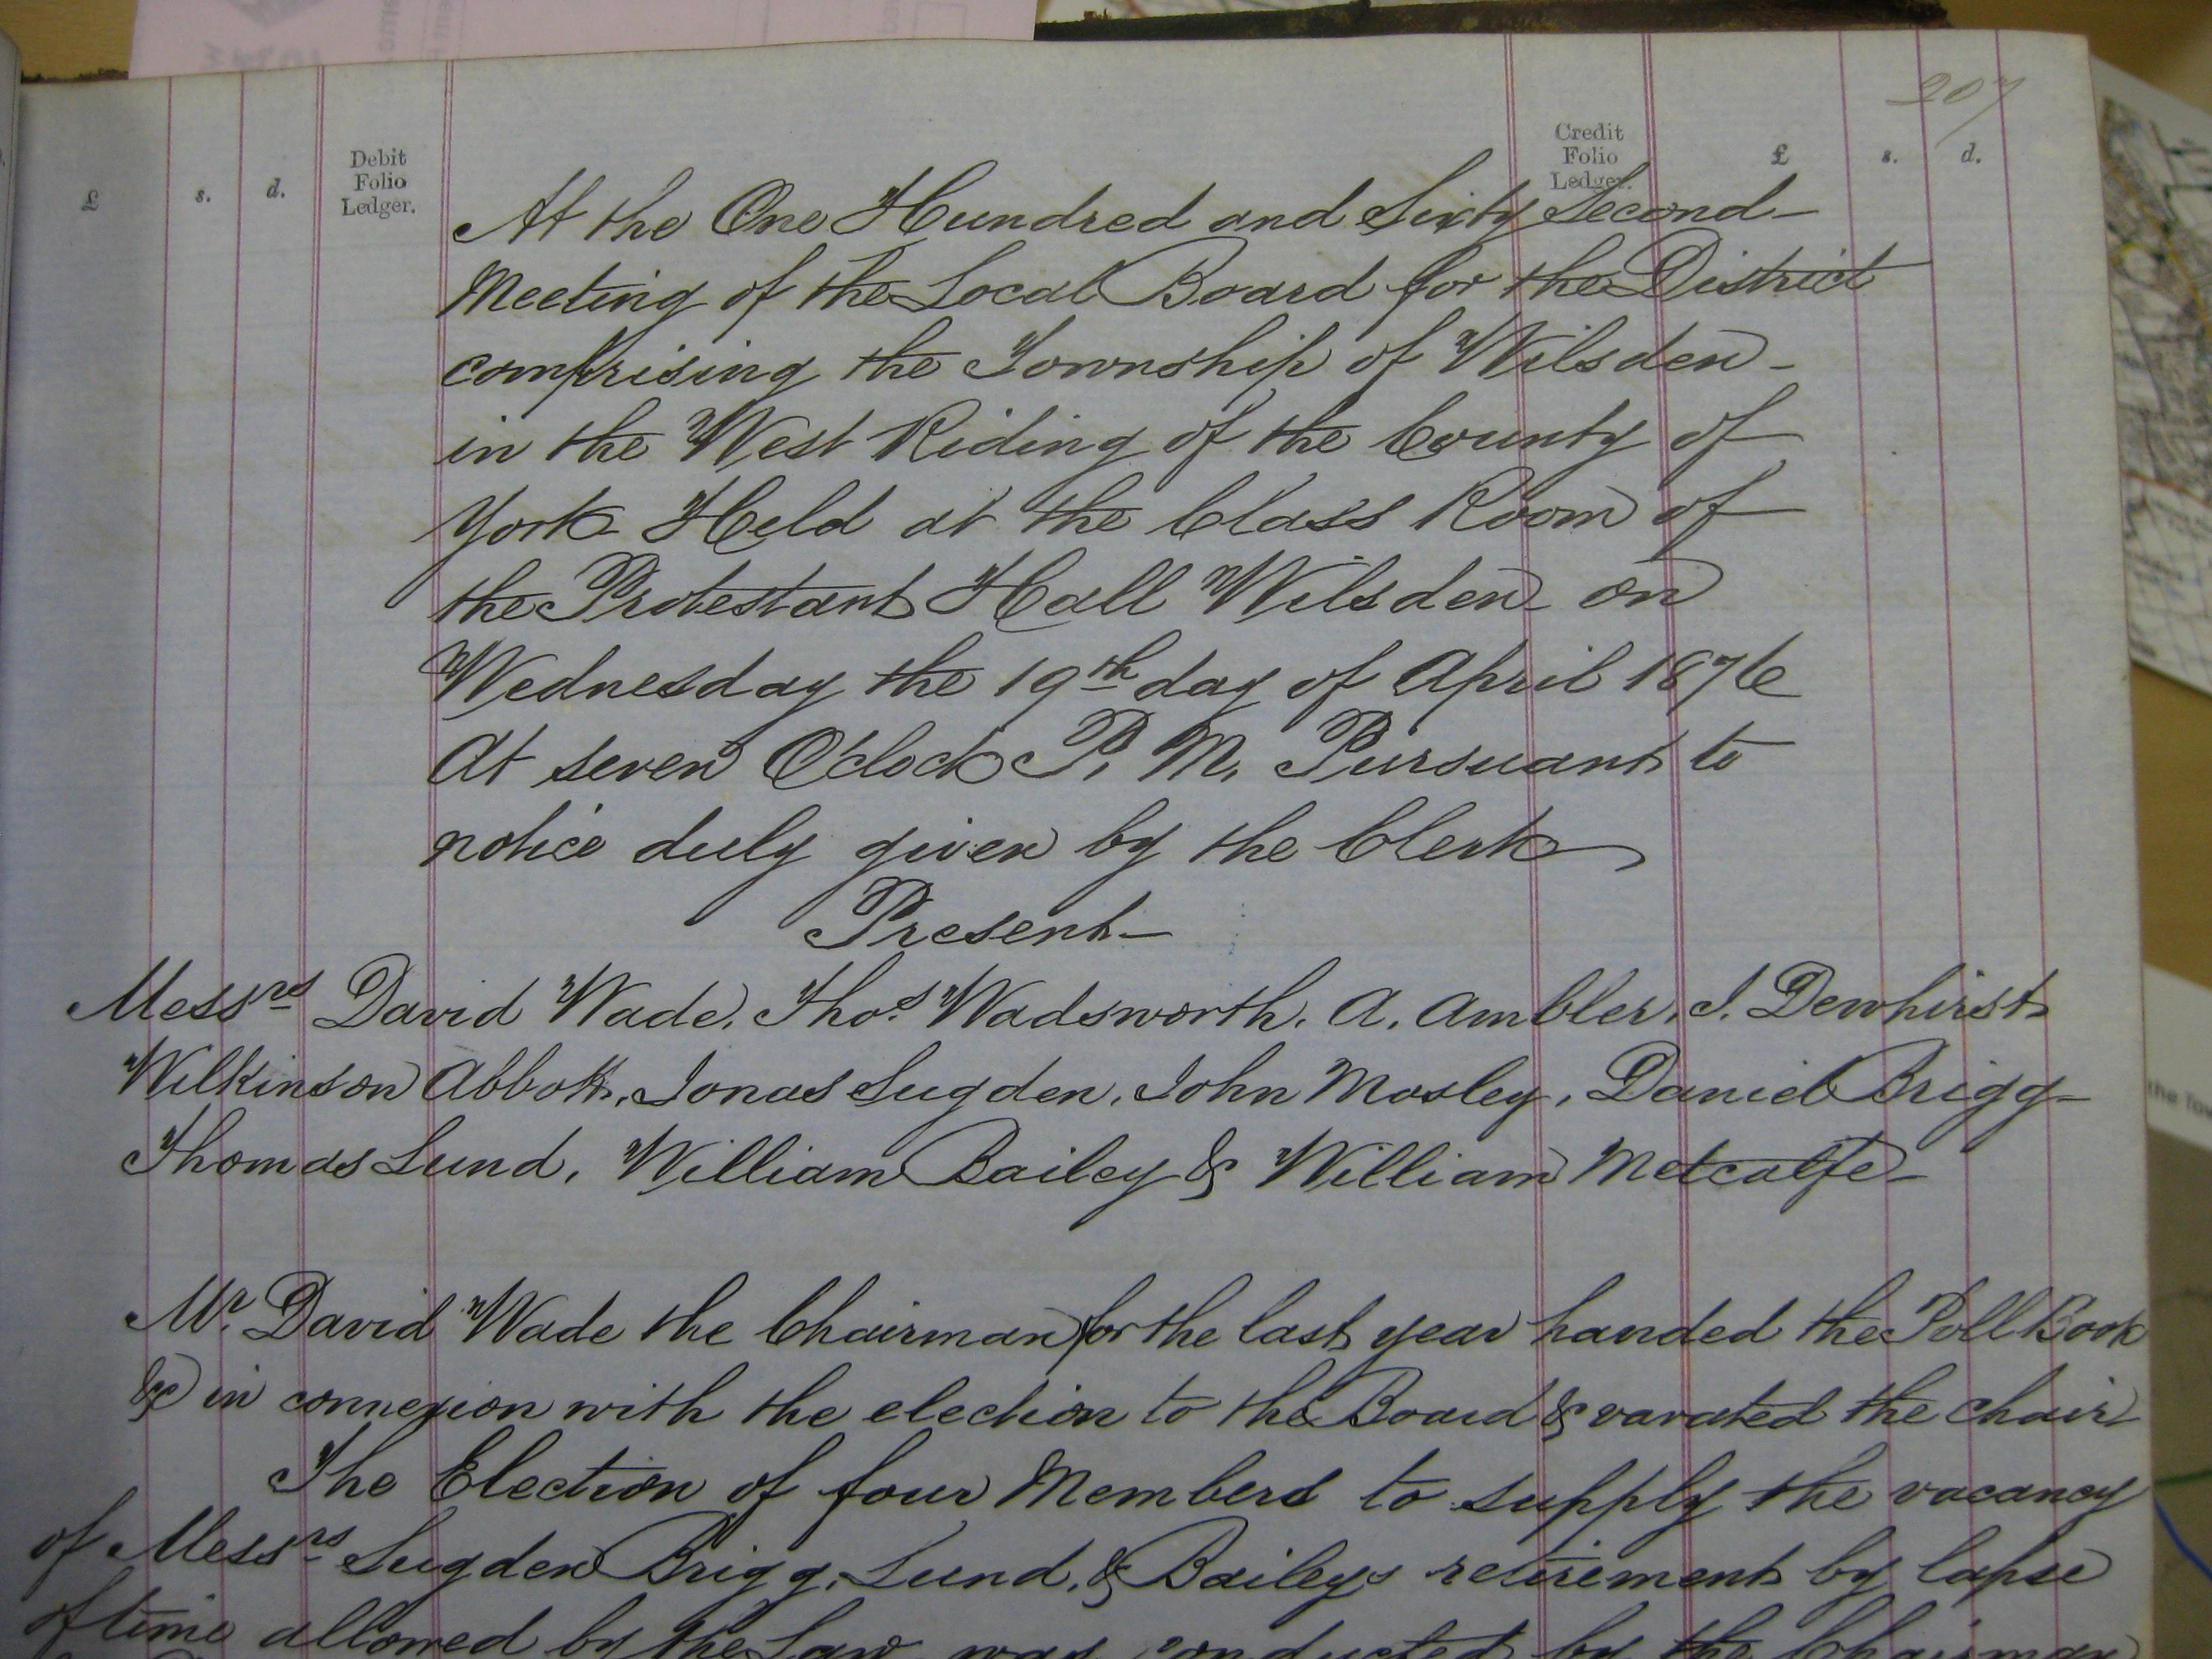 207
£ s. d. Debit Folio Ledger. Credit Folio Ledger. £ s. d.
At the One Hundred and Sixty Second
Meeting of the Local Board for the District
comprising the Township of Wilsden
in the West Riding of the County of
York Held at the Class Room of
the Protestant Hall Wilsden on
Wednesday the 19th day of April 1876
At seven O'clock P. M. Pursuant to
notice duly given by the Clerk
Present
Messrs David Wade. Thos. Wadsworth. A. Ambler. J. Dewhirst
Wilkinson Abbott. Jonas Sugden. John Mosley, Daniel Brigg
Thomas Lund, William Bailey & William Metcalfe
Mr. David Wade the Chairman for the last year handed the Poll Book
&c in connexion with the election to the Board & vavated the chair
The Election of four Members to supply the vacancy
of Messrs Sugden Brigg, Lund, & Baileys retirement by lapse
of time allowed by the Law was conducted by the Chairman